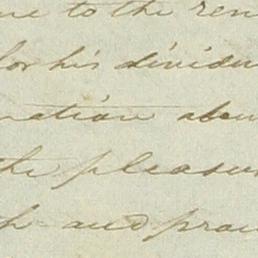 me to the ren
for his dividu
nation abou
the pleasur
h and prou